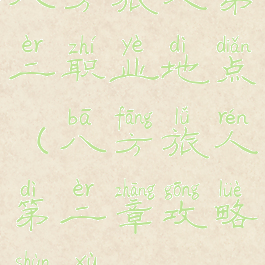 八方旅人第
èr zhí yè dì diǎn
二职业地点
bā fāng lǚ rén
(八方旅人
dì èr zhāng gōng lüè
第二章攻略
shùn xù